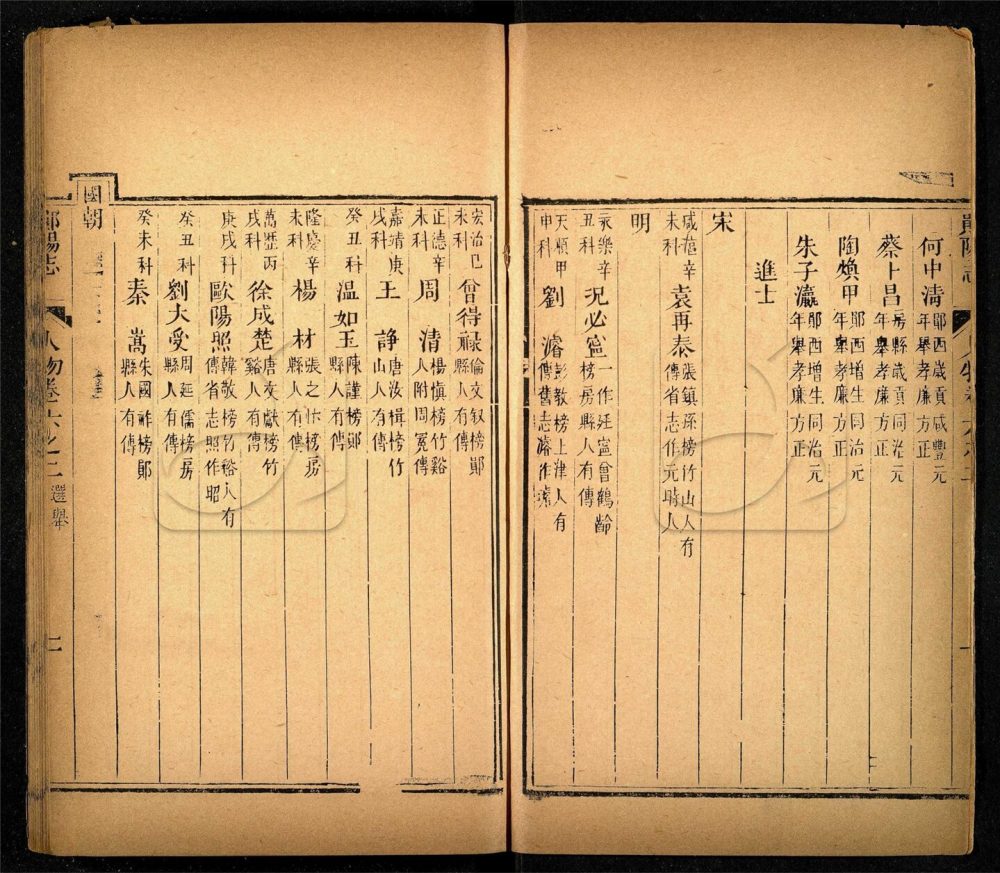 何中淸 鄖西歲貢同咸豐元年舉孝廉方正
蔡卜昌 房縣歲貢同治元年舉孝廉方正
陶煥甲 鄖西增生同治元年舉孝廉方正
朱子瀛 鄖西增生同治元年舉孝廉方正
進士
宋
咸淳辛未科 袁再泰 張鎮孫榜竹山人有傳省志作元時人
明
永樂辛丑科 況必寧 一作廷寧曾鶴齡榜房縣人有傳
天順甲申科 劉濬 彭教榜上津人有傳舊志濬作濬
宏治己未科 曾得祿 倫文叙榜鄖縣人有傳
正德辛未科 周淸 楊愼榜竹谿人附周冕傳
嘉靖庚戌科 王諍 唐汝楫榜竹山人有傳
癸丑科 溫如玉 陳謹榜鄖縣人有傳
隆慶辛未科 楊材 張之榜房縣人有傳
萬歷丙戌科 徐成楚 唐文獻榜竹谿人有傳
庚戌科 歐陽照 韓敬榜竹谿人有傳省志照作昭
癸丑科 劉大受 周延儒榜房縣人有傳
癸未科 秦嵩 朱國祚榜鄖縣人有傳
國朝
鄖陽志 人物卷六之二 選舉 七